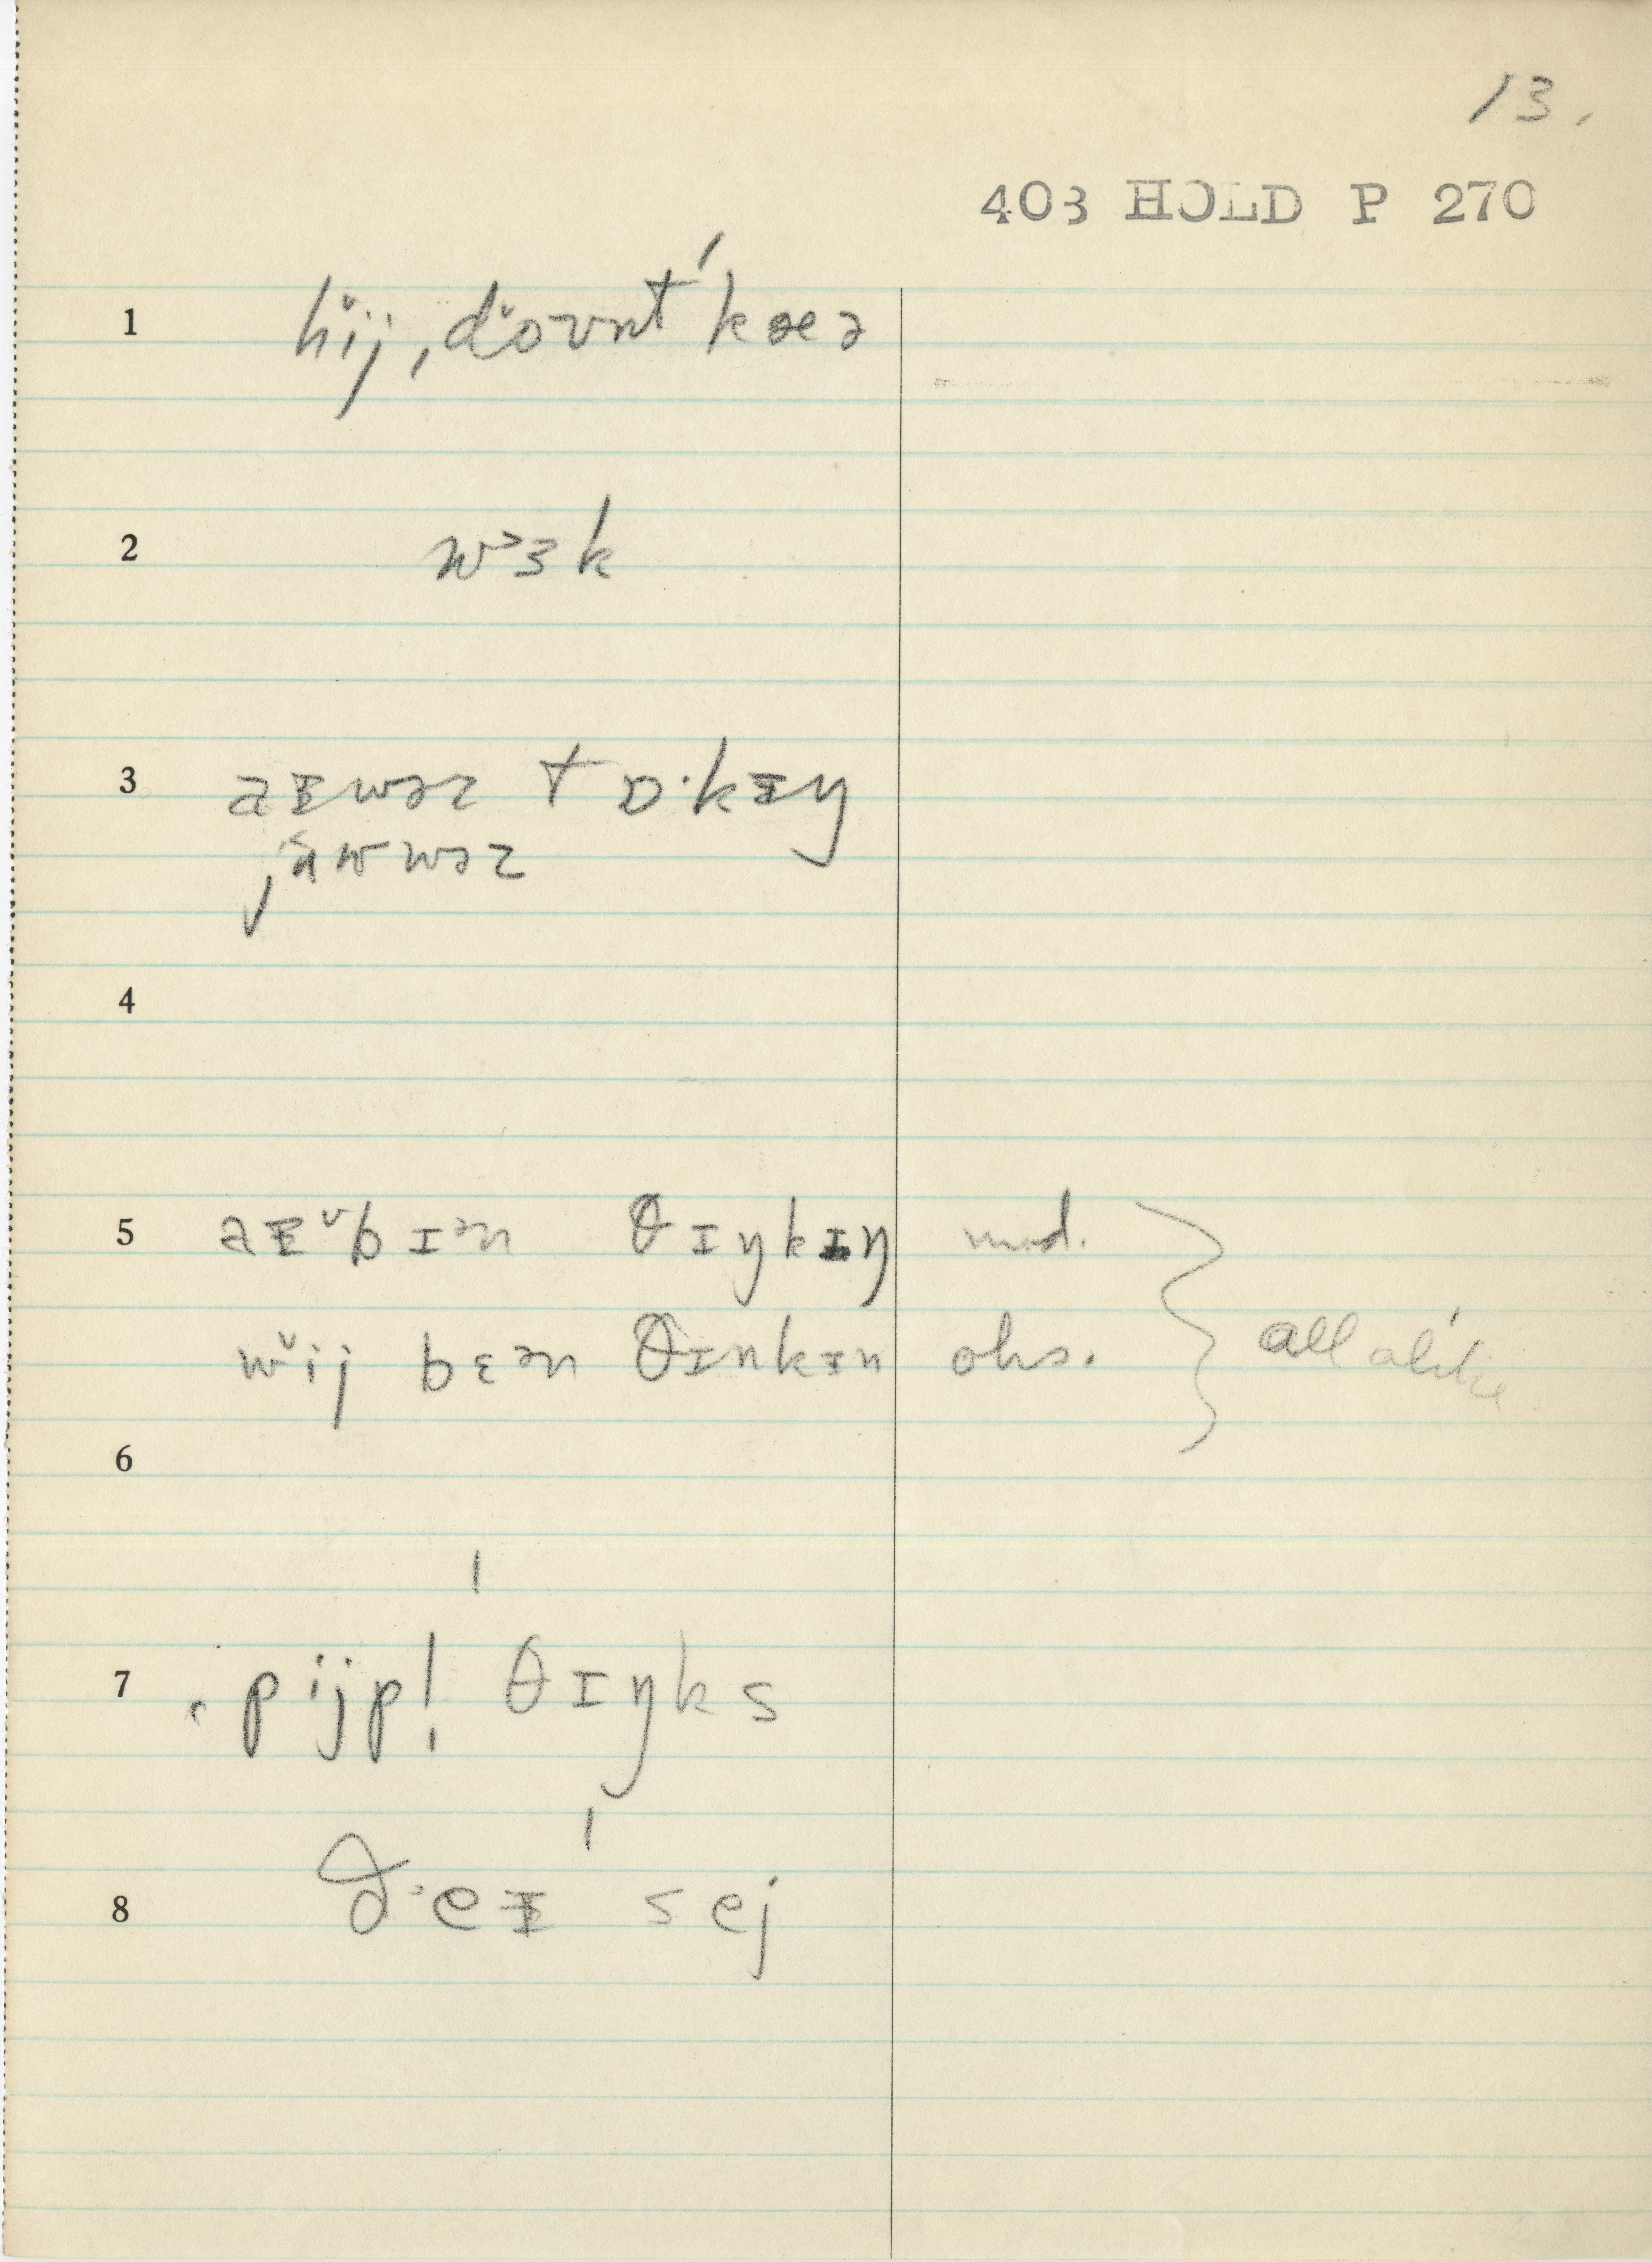 13.
403 HOLD P 270
1 hij, dovnt kæə
2 wɜk
3 aɪwəz tɒ·kɪŋ
jʉwwəz
4
5 aɪ bɪən θɪŋkɪŋ mod.
wij bɛən θɪnkɪn ohs. all alike
6
7 pijpl̩ θɪŋks
8 ðeɪ sej